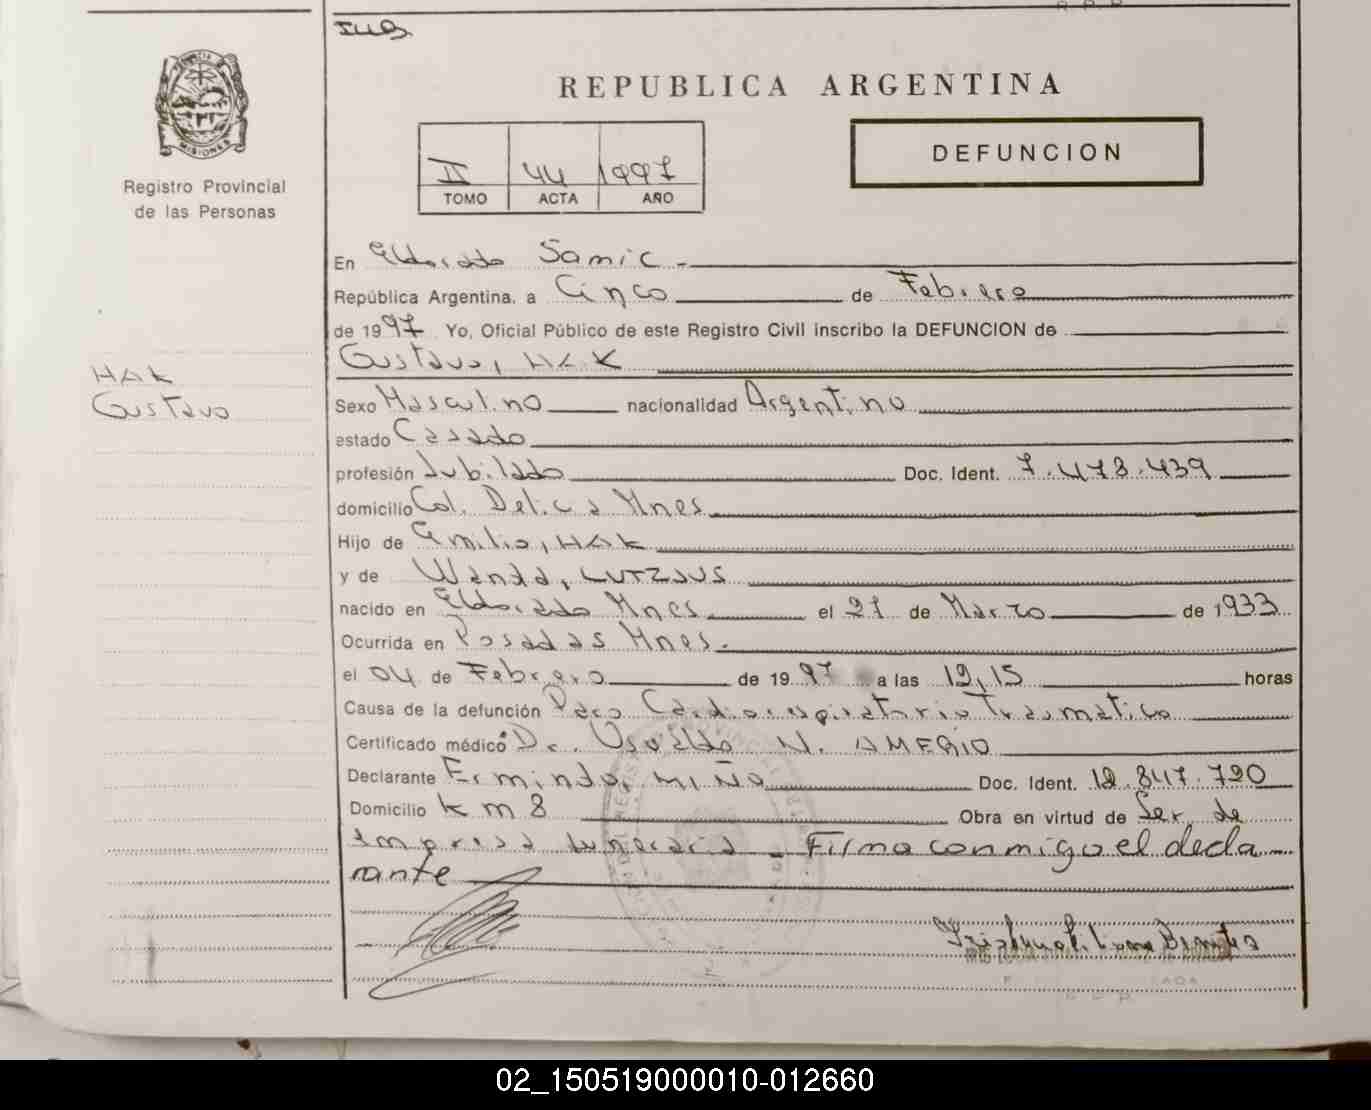 REPUBLICA ARGENTINA
MISIONES
Registro Provincial
de las Personas
II 44 1997
TOMO ACTA AÑO
DEFUNCION
En Eldorado Samic -
República Argentina, a Cinco de Febrero
de 1997 Yo, Oficial Público de este Registro Civil inscribo la DEFUNCION de
Gustavo, HAK
HAK
Gustavo
Sexo Masculino nacionalidad Argentino
estado Casado
profesión Jubilado Doc. Ident. 7.478.439
domicilio Col. Delicia Mnes
Hijo de Emilio, HAK
y de Wanda, LUTZJUS
nacido en Eldorado Mnes el 27 de Marzo de 1933
Ocurrida en Posadas Mnes.
el 04 de Febrero de 1997 a las 12,15 horas
Causa de la defunción Paro Cardiorespiratorio Traumatico
Certificado médico Dr. Osvaldo N. AMERIO
Declarante Erminda, MIÑO Doc. Ident. 12.847.720
Domicilio km 8 Obra en virtud de Ser de
empresa funeraria - Firma conmigo el decla
rante
02_150519000010-012660